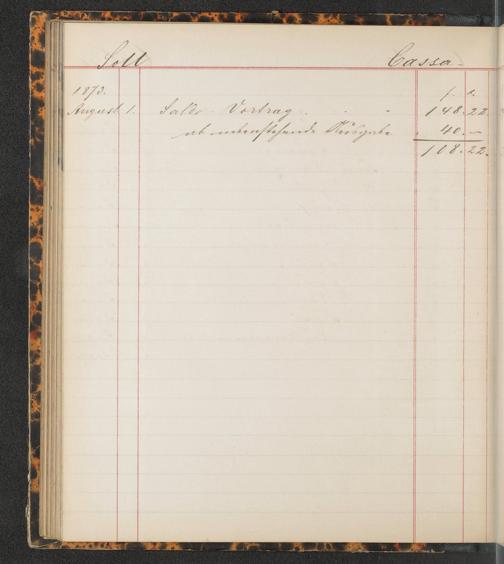 Soll Cassa
1873.
August 1. Saldo Vortrag . . . 148.22.
ab nebenstehende Ausgabe . 40.—
108.22.